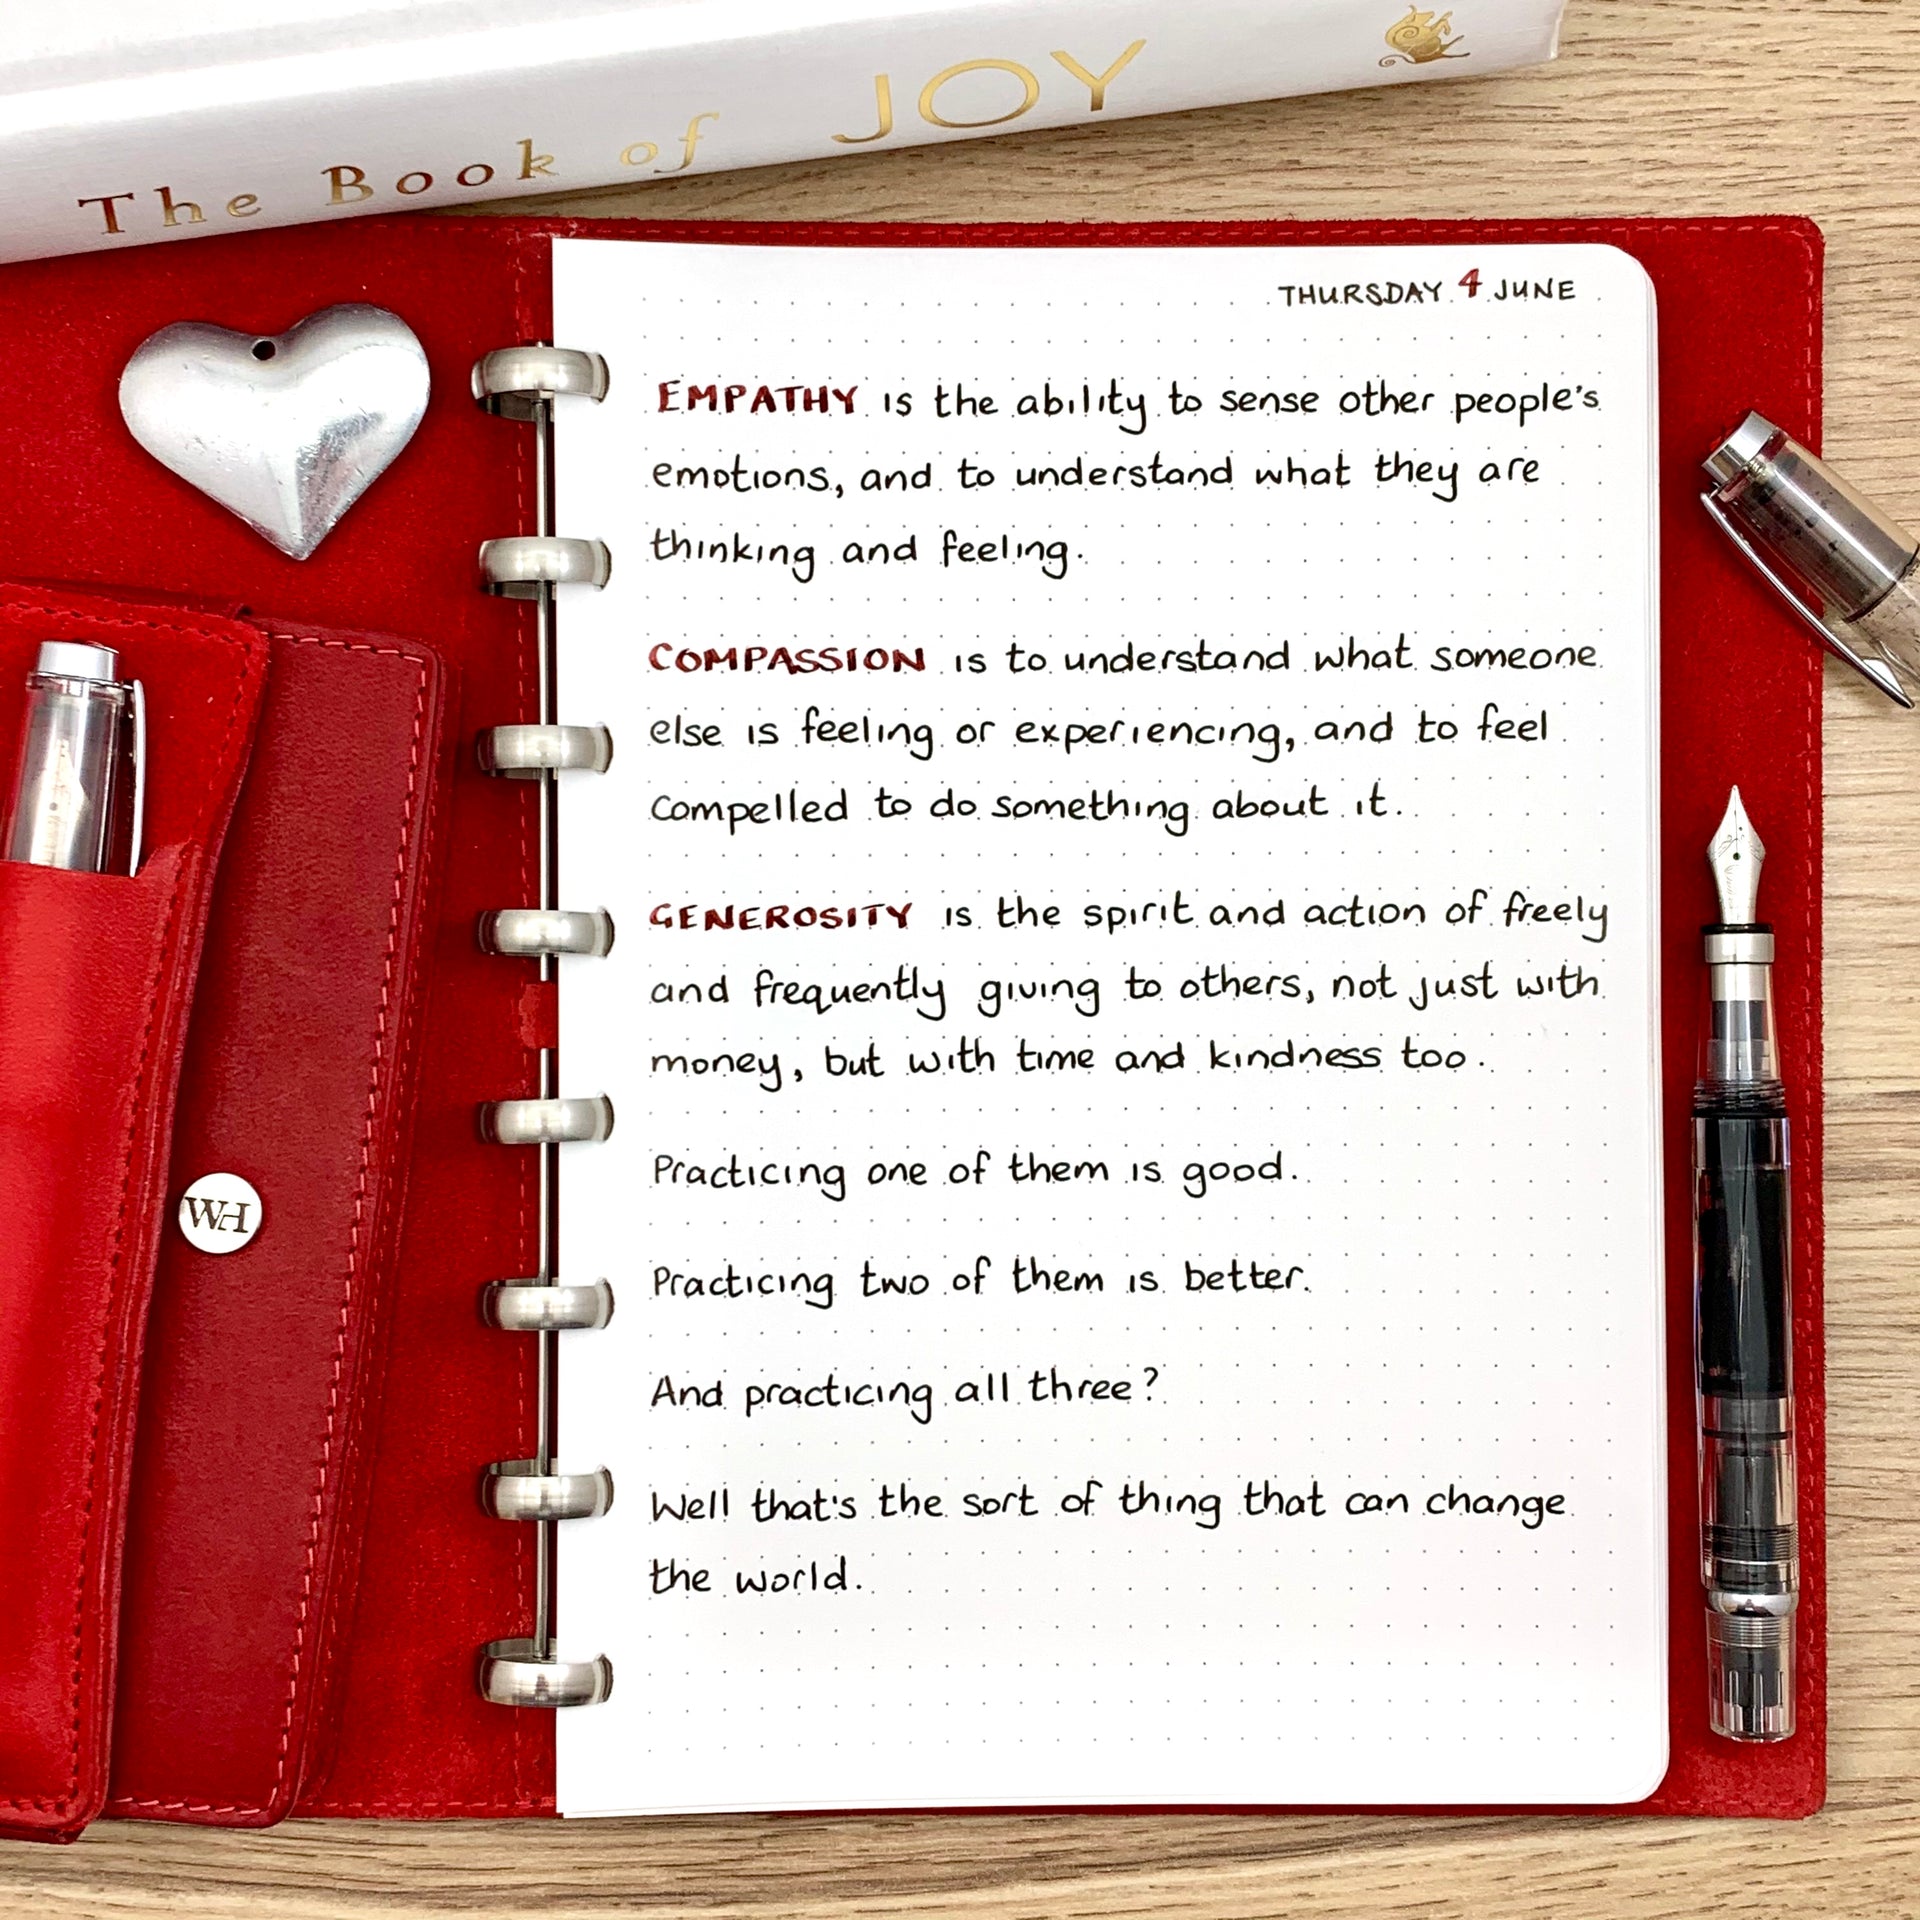 The Book of JOY
THURSDAY 4 JUNE
EMPATHY is the ability to sense other people's
emotions, and to understand what they are
thinking and feeling.
COMPASSION is to understand what someone
else is feeling or experiencing, and to feel
compelled to do something about it.
GENEROSITY is the spirit and action of freely
and frequently giving to others, not just with
money, but with time and kindness too.
Practicing one of them is good.
Practicing two of them is better.
And practicing all three?
Well that's the sort of thing that can change
the world.
WH